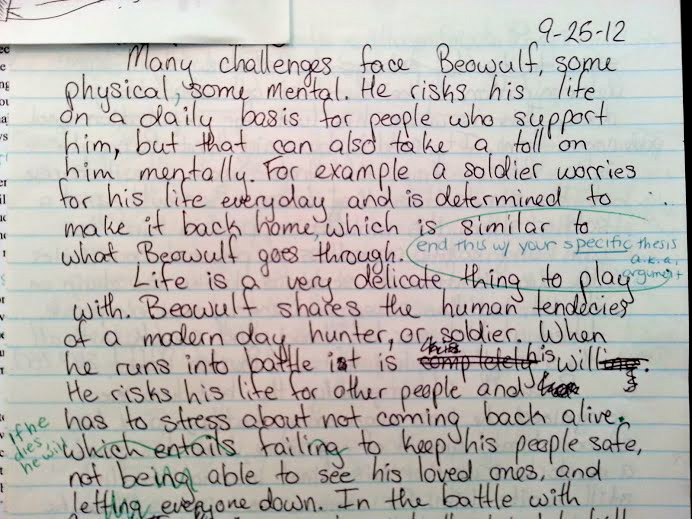 9-25-12
Many challenges face Beowulf, some
physical, some mental. He risks his life
on a daily basis for people who support
him, but that can also take a toll on
him mentally. For example a soldier worries
for his life everyday and is determined to
make it back home, which is similar to
what Beowulf goes through.
end this w/ your specific thesis
a.k.a.
argument
Life is a very delicate thing to play
with. Beowulf shares the human tendecies
of a modern day hunter, or soldier. When
he runs into battle it is completely his will.
He risks his life for other people and
has to stress about not coming back alive.
If he
dies,
he will
which entails failing to keep his people safe,
not being able to see his loved ones, and
letting everyone down. In the battle with